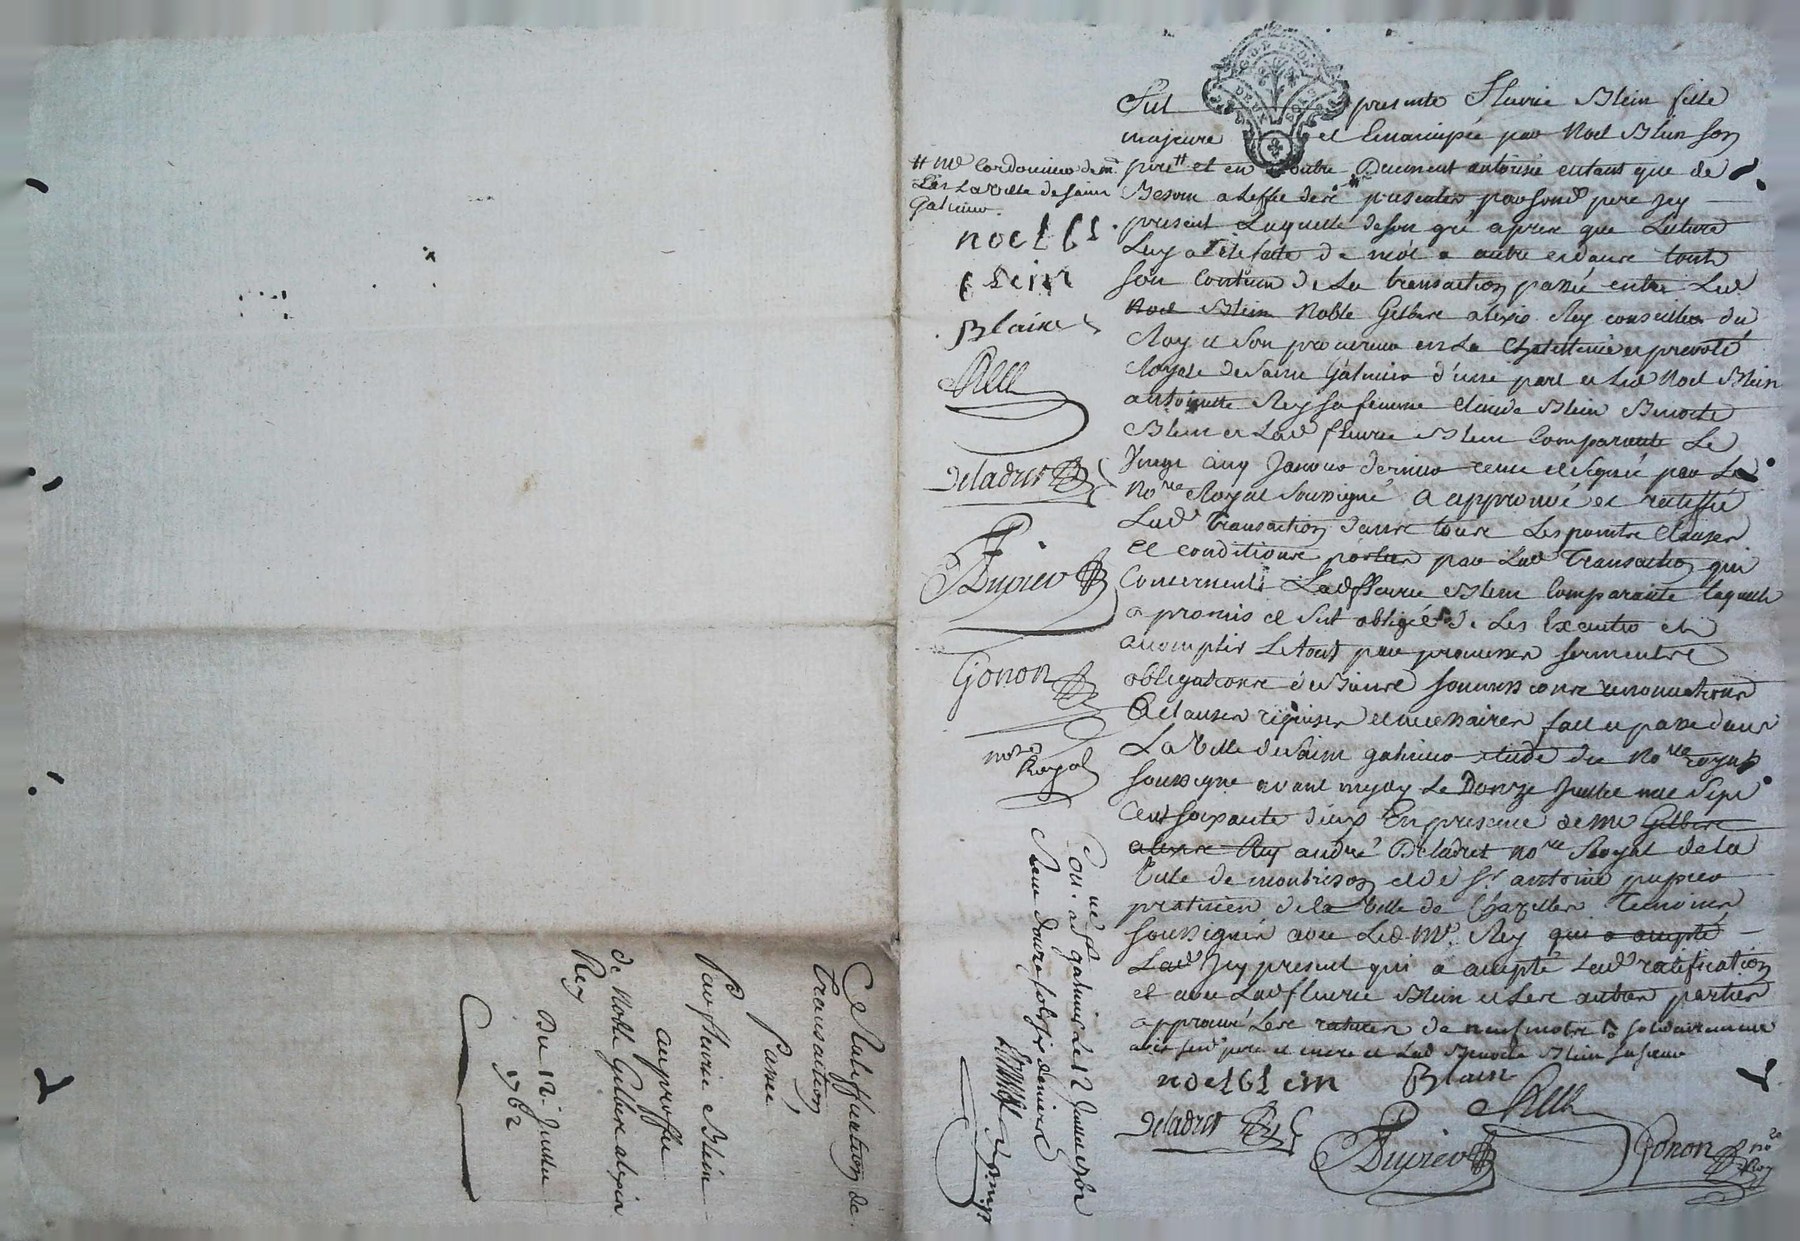 G.D.E LYON
DEUX SOLS
Fut presente Fleurie Blein fille
majeure et Emancipée par Noel Blein son
pere # et en outre Duement autorisé entant que de
Besoin a leffet des presentes par sond pere jcy
present Laquelle de son gré apres que Lecture
Luy a eté faite de mot a autre et dans tout
son Contenu de La transaction passée entre Led
Noel Blein Noble Gilbert alexis Rey conseiller du
Roy et son procureur en La Chatellenie et prevoté
Royale de Saint Galmier d'une part et led Noel Blein
antoinette Rey sa femme Claude Blein Benoite
Blein et Lad fleurie Blein Comparante Le
Vingt cinq Janvier dernier reçue et signée par Le
Nore Royal soussigné a approuvé et ratiffié
Lad Transaction dans tous Les points Clauses
et conditions portées par Lad Transaction qui
Concernent Lad fleurie Blein Comparante laquelle
a promis et s'est obligée de Les Executer et
accomplir Le tout par promesses serments
obligations de Biens soumissions renonciations
& clauses requises et necessaires fait et passé dans
La Ville de Saint galmier etude du Nore royal
soussigné avant midy Le Douze Juillet mil sept
Cent soixante deux En presence de Me Gilbert
alexis Rey andré Deladret nore Royal de la
Ville de montbrison et de Sr antoine pupier
praticien de la Ville de Chazelles Temoins
soussignés avec Led Me Rey qui a accepté
Lad jcy present qui a accepté Lad ratification
et avec Lad fleurie Blein et Les autres parties
approuvé Les ratures de neuf mots
avec sond pere et mere et Lad Benoite Blein sa sœur
noel blein Blain
Rey
Deladret
Pupier
Gonon nore Roy
# Me Cordonnier de
La Ville de Saint
Galmier.
noel bl
lein
Blaine
Rey
Deladret
Pupier
Gonon
nore
Royal
Con. a St galmier Le 12 Juillet 1762
Reçu Douze sols six deniers
Ratiffication de
Transaction
Passée
Par fleurie Blein
au proffit
de Noble Gilbert alexis
Rey
Du 12. Juillet
1762